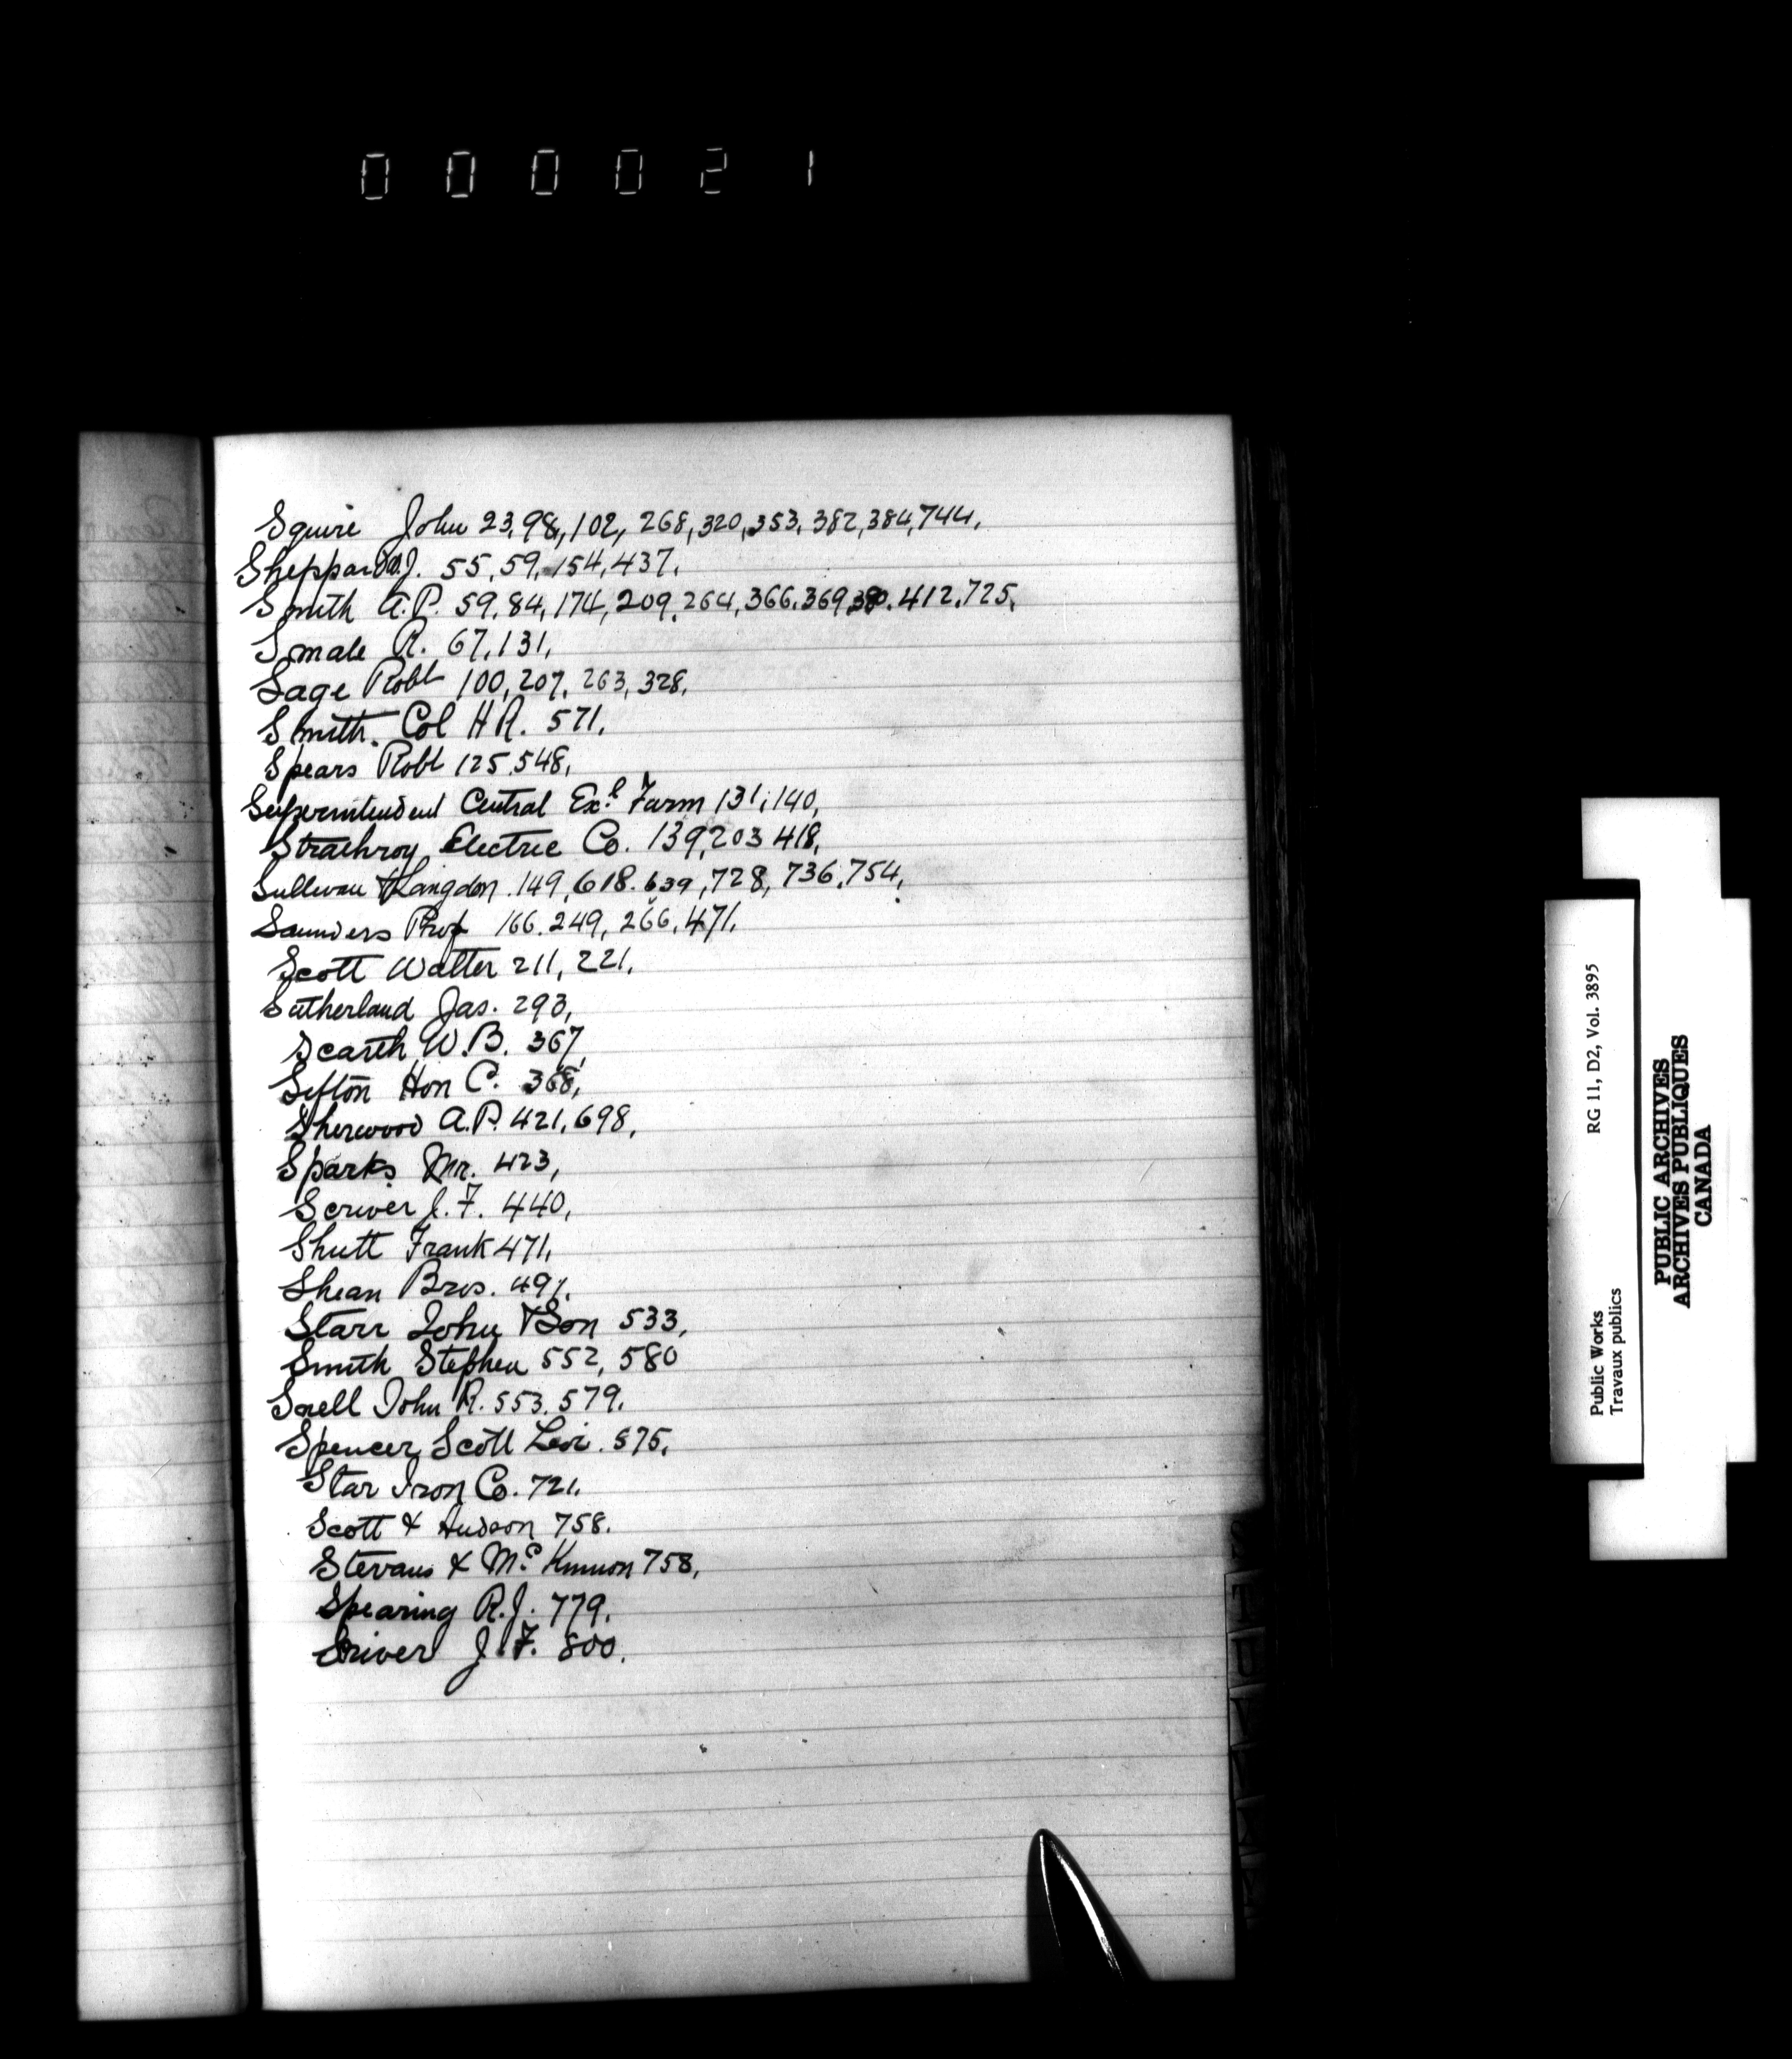 000021
Squire John 23,98,102, 268,320,353,382,384,744,
Sheppard J. 55,59,154,437,
Smith A.P. 59,84,174,209,264,366,369,380.412,725,
Smale R. 67,131,
Sage Robt 100,207,263,328,
Smith. Col H R. 571.
Spears Robt 125,548,
Superintendent Central Exl Farm 131,140,
Strathroy Electric Co. 139,203 418,
Sullivan & Langdon 149,618.639,728,736,754,
Saunders Prof 166.249,266,471.
Scott Walter 211,221,
Sutherland Jas. 293,
Scarth W.B. 367,
Sifton Hon C. 368,
Sherwood A.P. 421,698,
Sparks Mr. 423,
Scriver J.F. 440,
Shutt Frank 471,
Shean Bros. 497.
Starr John & Son 533,
Smith Stephen 552, 580
Snell John R. 553.579.
Spencer Scott Levi. 575,
Star Iron Co. 721.
Scott & Hudson 758.
Stevans & Mc Kinnon 758,
Spearing R.J. 779.
Scriver J.F. 800.
RG 11, D2, Vol. 3895
Public Works
Travaux publics
PUBLIC ARCHIVES
ARCHIVES PUBLIQUES
CANADA